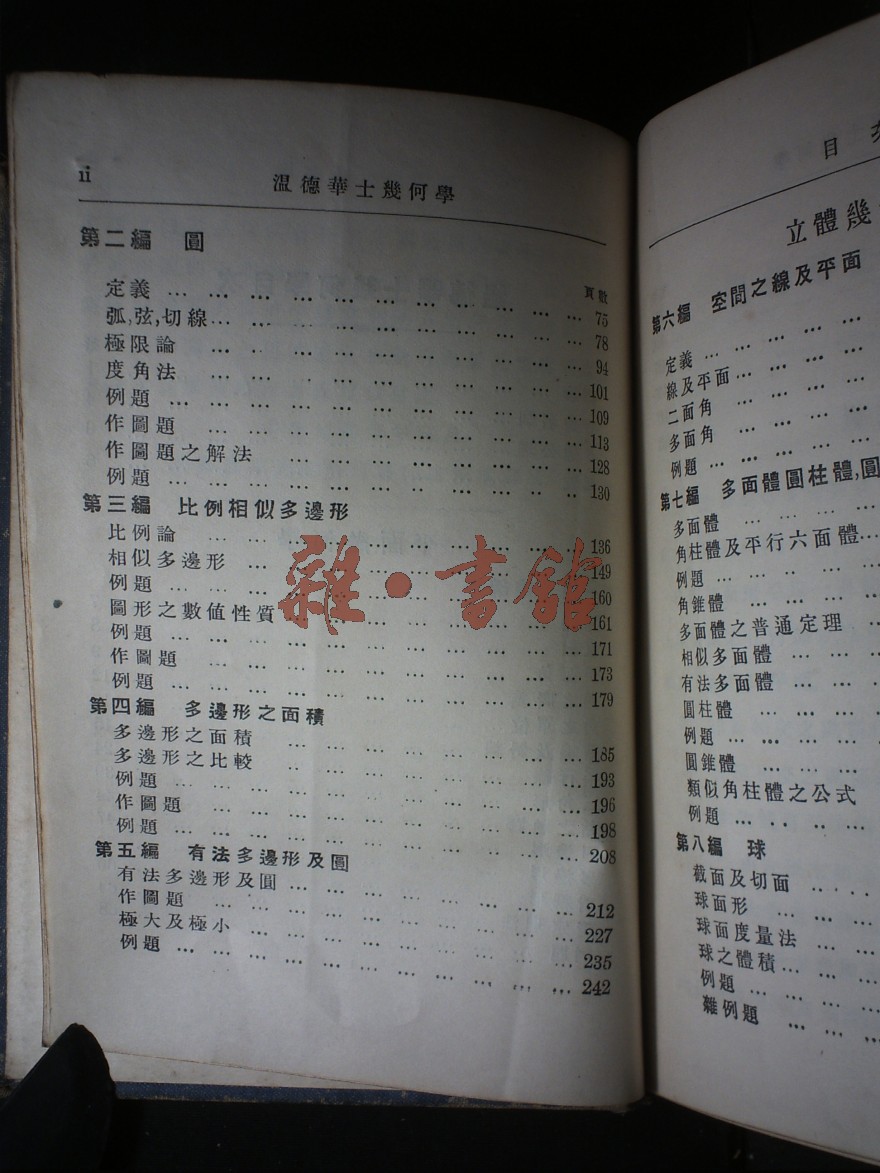 ii
溫德華士幾何學
第二編 圓
頁數
定義 … … … … … … … … … … 75
弧,弦,切線… … … … … … … … … … 78
極限論 … … … … … … … … … … 94
度角法 … … … … … … … … … … 101
例題 … … … … … … … … … … 109
作圖題 … … … … … … … … … … 113
作圖題之解法 … … … … … … … … 128
例題 … … … … … … … … … … 130
第三編 比例相似多邊形
比例論 … … … … … … … … … … 136
相似多邊形 … … … … … … … … … 149
例題 … … … … … … … … … … 160
圖形之數值性質 … … … … … … … 161
例題 … … … … … … … … … … 171
作圖題 … … … … … … … … … … 173
例題 … … … … … … … … … … 179
第四編 多邊形之面積
多邊形之面積 … … … … … … … … 185
多邊形之比較 … … … … … … … … 193
例題 … … … … … … … … … … 196
作圖題 … … … … … … … … … … 198
例題 … … … … … … … … … … 208
第五編 有法多邊形及圓
有法多邊形及圓 … … … … … … … … 212
作圖題 … … … … … … … … … … 227
極大及極小 … … … … … … … … … 235
例題 … … … … … … … … … … 242
雜·書館
目
立體幾
第六編 空間之線及平面
定義 … … … … …
線及平面 … … … …
二面角 … … … …
多面角 … … … …
例題 … … … … …
第七編 多面體圓柱體,圓
多面體 … … …
角柱體及平行六面體…
例題 … … … … …
角錐體 … … … …
多面體之普通定理 …
相似多面體 … … …
有法多面體 … … …
圓柱體 … … … …
例題 … … … … …
圓錐體 … … … …
類似角柱體之公式
例題 … … … …
第八編 球
截面及切面 … …
球面形 … … …
球面度量法 … …
球之體積 … … …
例題 … … … …
雜例題 … … …